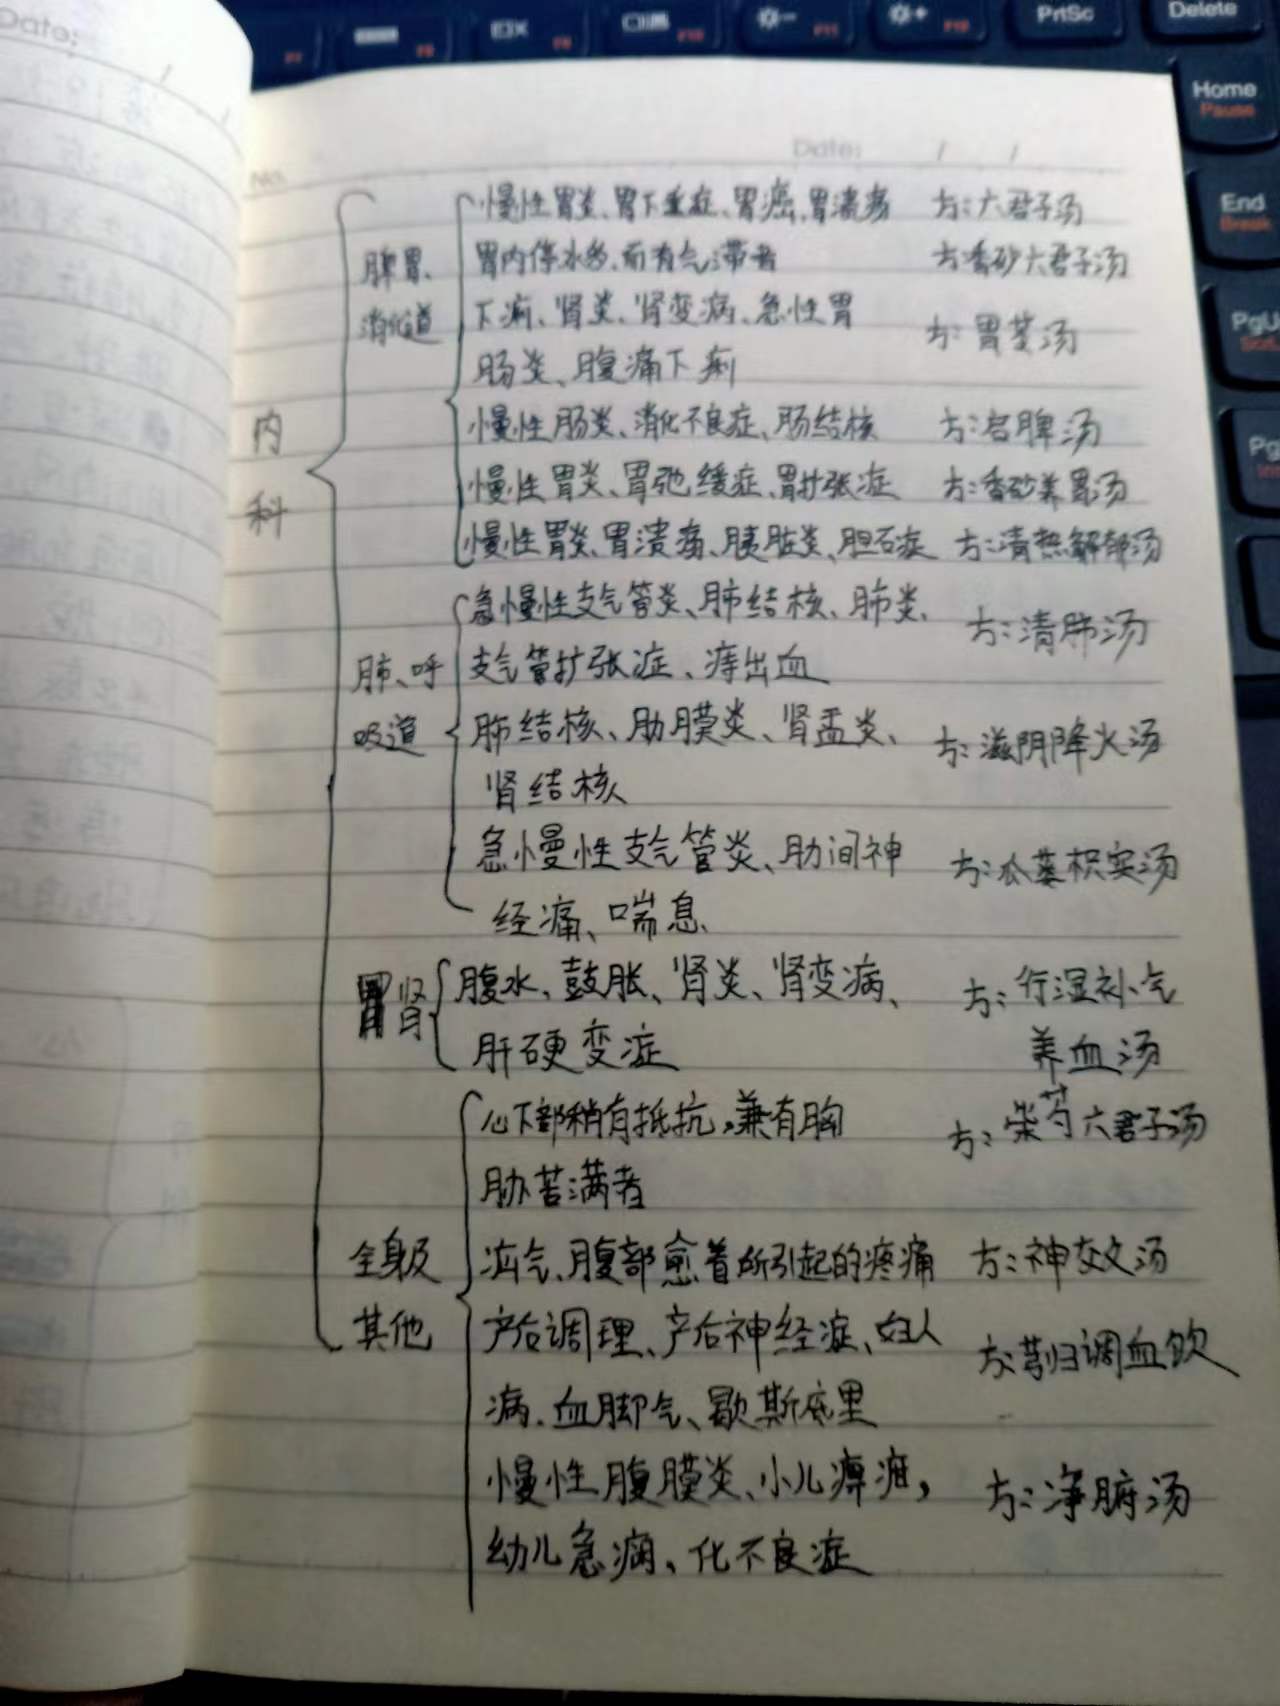 Date:
F9
F10
F11
F12
PrtSc
Delete
Home
Pause
End
Break
PgU
Pg
No.
Date: / /
内科
脾胃、消化道
慢性胃炎、胃下垂症、胃癌、胃溃疡 方:六君子汤
胃内停水多,而有气滞者 方:香砂六君子汤
下痢、肾炎、肾变病、急性胃 方:胃苓汤
肠炎、腹痛下痢
慢性肠炎、消化不良症、肠结核 方:启脾汤
慢性胃炎、胃弛缓症、胃扩张症 方:香砂养胃汤
慢性胃炎、胃溃疡、胰脏炎、胆石症 方:清热解郁汤
肺、呼吸道
急慢性支气管炎、肺结核、肺炎、 方:清肺汤
支气管扩张症、痔出血
肺结核、肋膜炎、肾盂炎、 方:滋阴降火汤
肾结核
急慢性支气管炎、肋间神 方:瓜蒌枳实汤
经痛、喘息
肾
腹水、鼓胀、肾炎、肾变病、 方:行湿补气
肝硬变症 养血汤
全身及其他
心下部稍有抵抗,兼有胸 方:柴芍六君子汤
胁苦满者
疝气、腹部愈着所引起的疼痛 方:神效汤
产后调理、产后神经症、妇人 方:芎归调血饮
病、血脚气、歇斯底里
慢性腹膜炎、小儿 方:净腑汤
幼儿急痫、化不良症